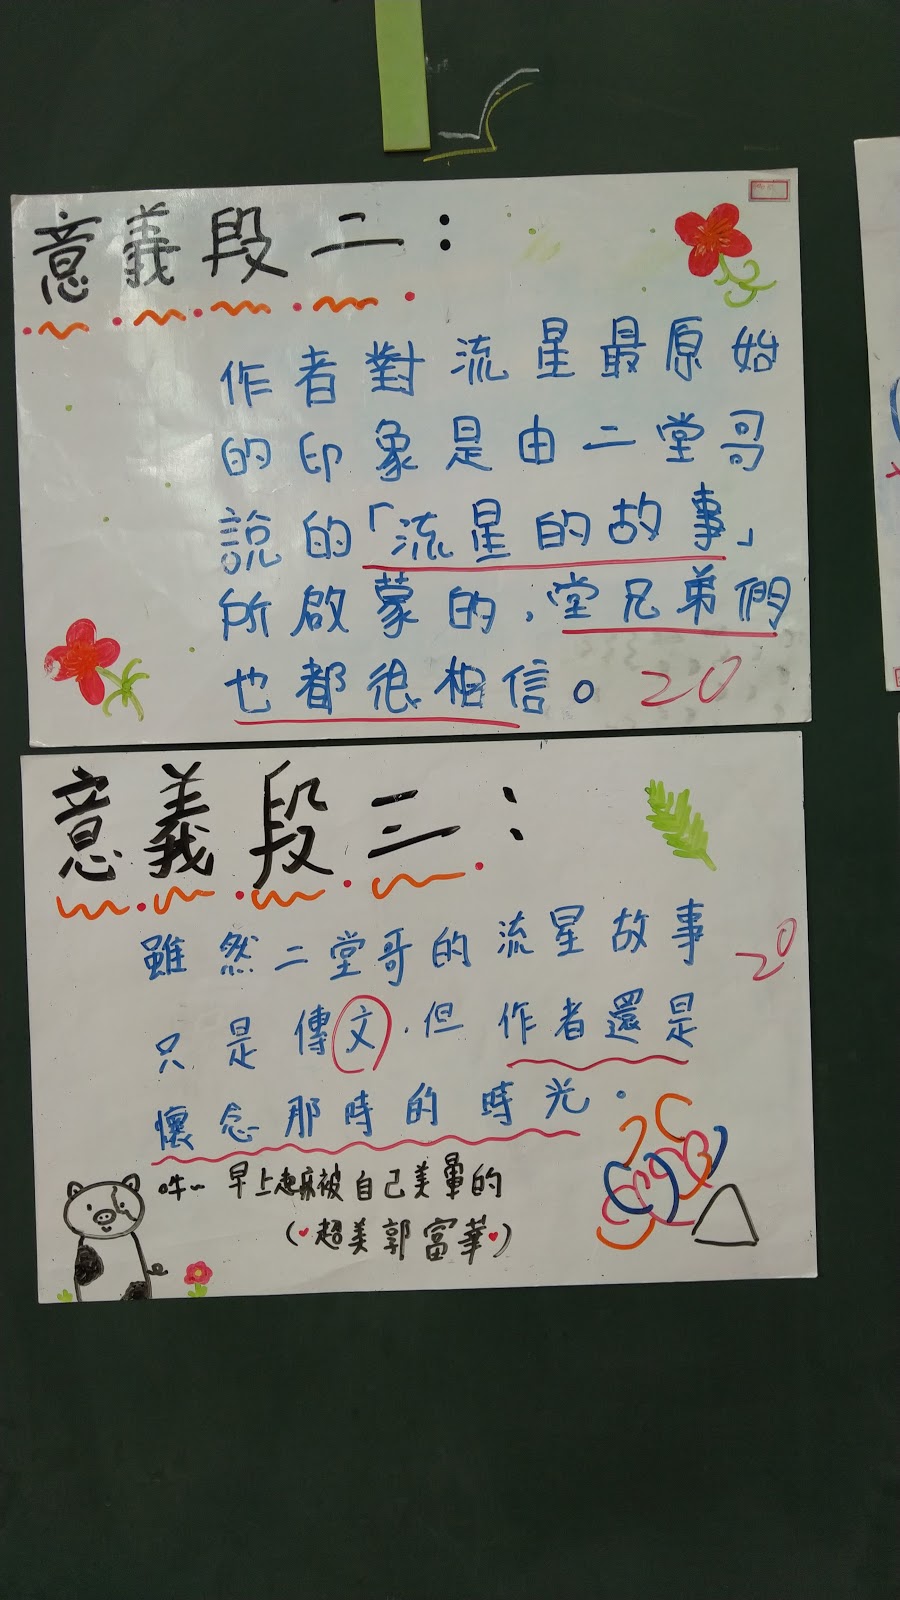 意義段二：
作者對流星最原始
的印象是由二堂哥
說的「流星的故事」
所啟蒙的，堂兄弟們
也都很相信。 20
意義段三：
雖然二堂哥的流星故事
20
只是傳文，但作者還是
懷念那時的時光。
早上起床被自己美暈的
(超美郭富華)